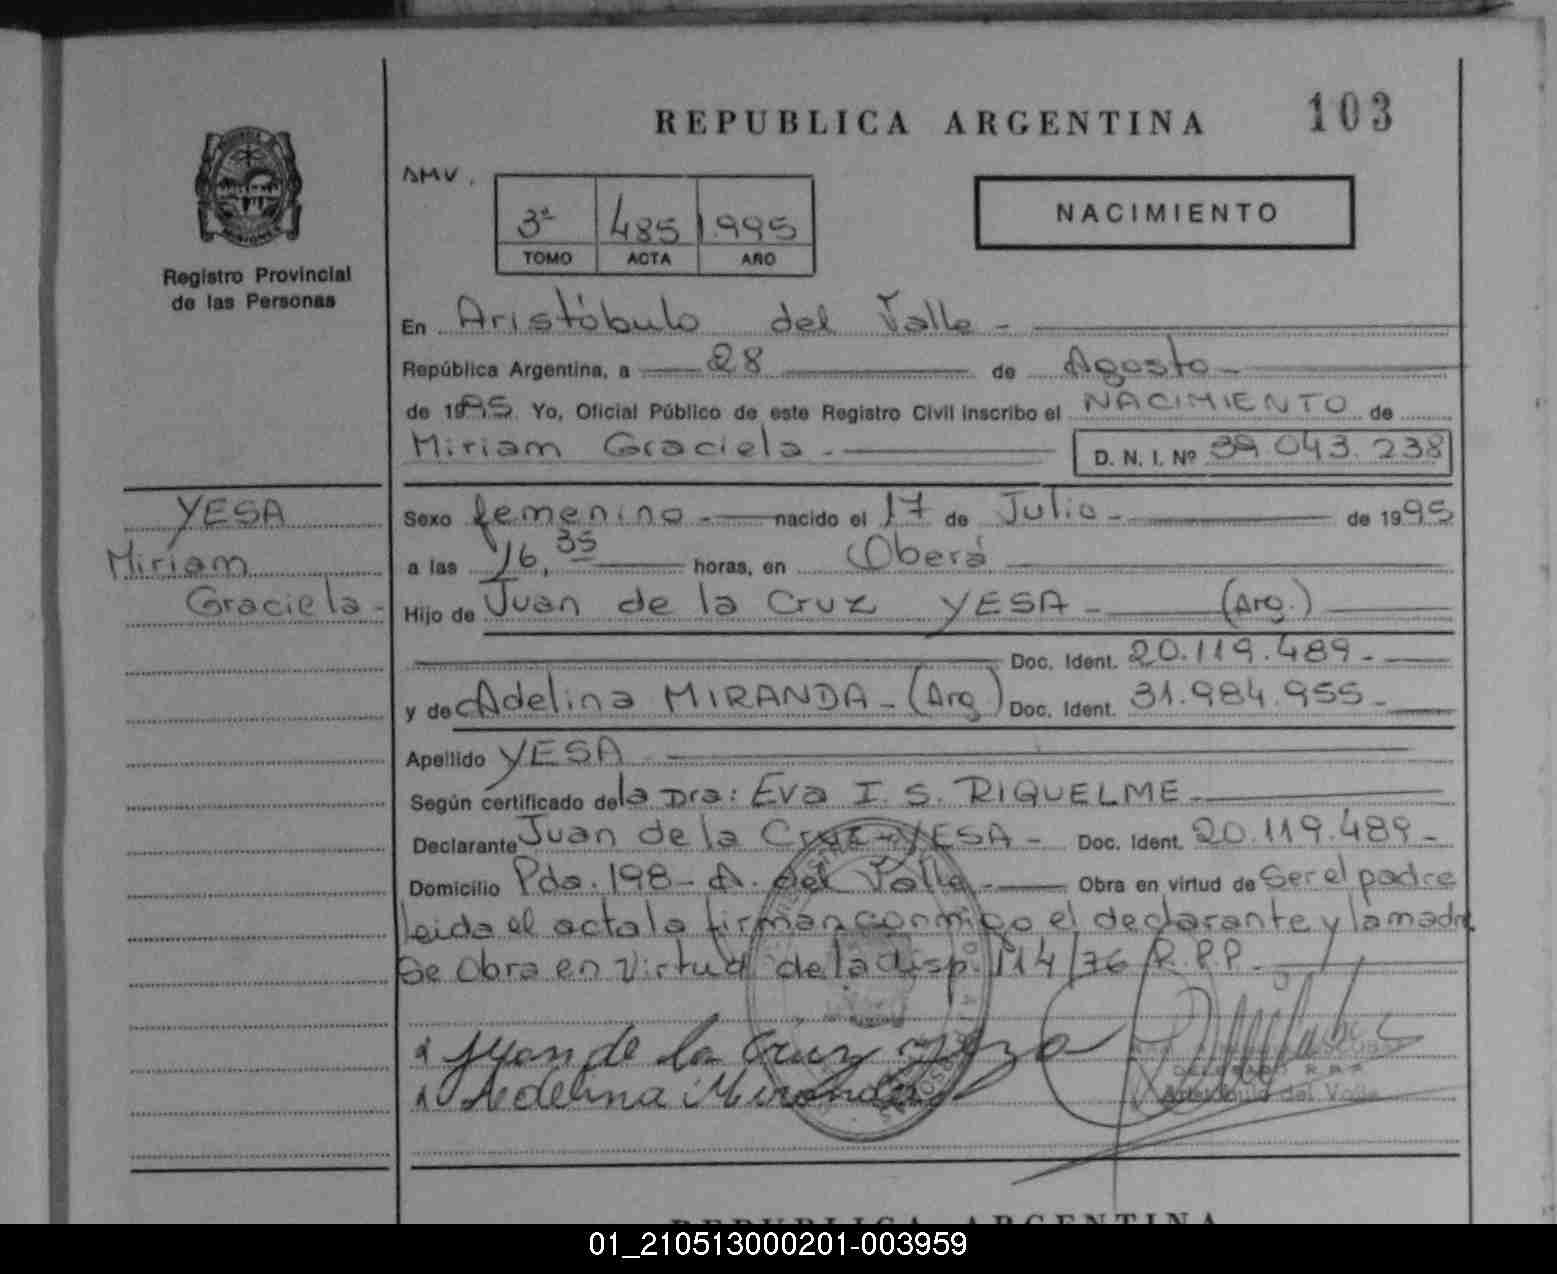 REPUBLICA ARGENTINA 103
AMV.
3ª 485 1.995
TOMO ACTA AÑO
NACIMIENTO
Registro Provincial
de las Personas
En Aristóbulo del Valle -
República Argentina, a 28 de Agosto -
de 1995 Yo, Oficial Público de este Registro Civil inscribo el NACIMIENTO de
Miriam Graciela - D. N. I. Nº 39.043.238
YESA
Miriam
Graciela -
Sexo femenino - nacido el 17 de Julio - de 1995
a las 16,35 horas, en Oberá
Hijo de Juan de la Cruz YESA - (Arg.)
Doc. Ident. 20.119.489 -
y de Adelina MIRANDA - (Arg) Doc. Ident. 31.984.955 -
Apellido YESA
Según certificado de la Dra: Eva I. S. RIQUELME
Declarante Juan de la Cruz YESA - Doc. Ident. 20.119.489 -
Domicilio Pda. 198 - A. del Valle - Obra en virtud de Ser el padre
Leida el acta la firman conmigo el declarante y la madre
Se Obra en Virtud de la disp. 114/76 R.P.P.
Juan de la Cruz
Adelina Miranda
DELEGADO R.P.P.
Aristóbulo del Valle
REPUBLICA ARGENTINA
01_210513000201-003959